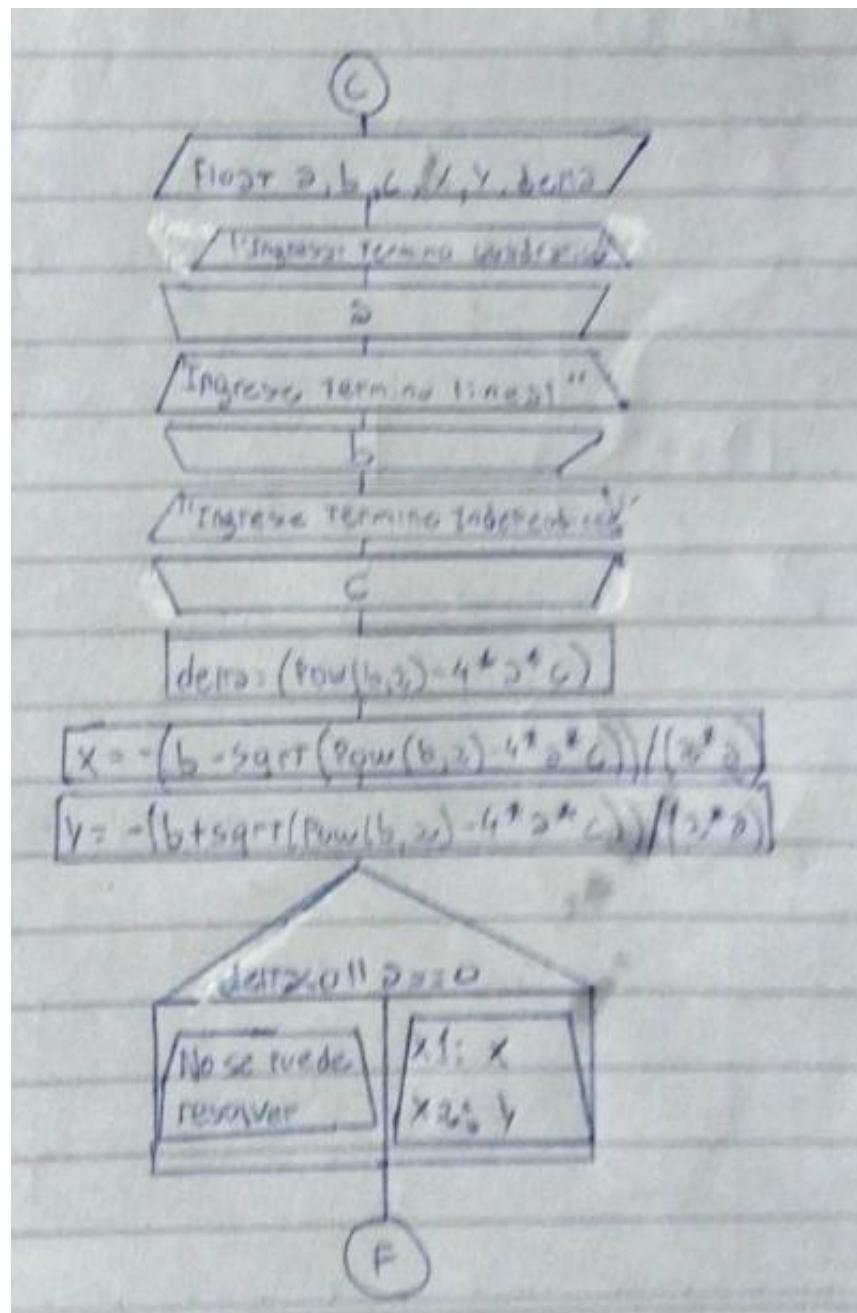 C
Float a, b, c, x, y, delta
"Ingrese termino cuadratico
a
"Ingrese termino lineal"
b
"Ingrese termino independiente"
c
delta=(Pow(b,2)-4*a*c)
x = -(b-sqrt(Pow(b,2)-4*a*c))/(2*a)
y = -(b+sqrt(Pow(b,2)-4*a*c))/(2*a)
delta<0||a==0
No se puede
resolver
x1: x
x2: y
F